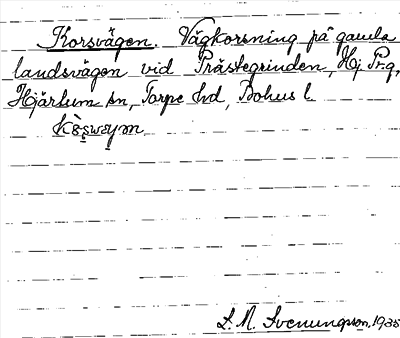 Korsvägen. Vägkorsning på gamla
landsvägen vid Prästegrinden, Hj. Pr.g,
Hjärtum sn, Torpe hd, Bohus l.
L. M. Svenungsson, 1935